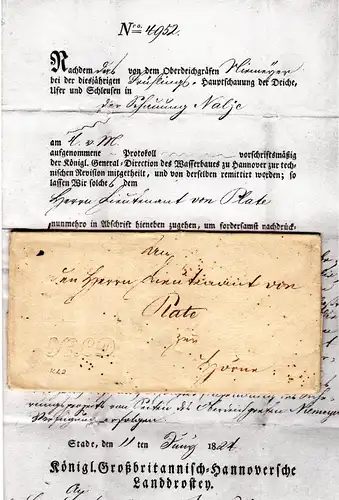 Nro. 4952.
Nachdem das von dem Oberdeichgräfen Niemeyer
bei der diesjährigen Frühlings- Hauptschauung der Deiche,
Ufer und Schleusen in
der Schauung Nalje
am 4. v. M.
aufgenommene Protokoll vorschriftsmäßig
der Königl. General-Direction des Wasserbaues zu Hannover zur tech-
nischen Revision mitgetheilt, und von derselben remittirt worden; so
lassen Wir solches dem
Herrn Lieutenant von Plate
nunmehro in Abschrift hieneben zugehen, um fordersamst nachdrück-
An
den Herrn Lieutenant von
Plate
zu
Hörne
STADE
von Seiten des Oberdeichgräfen Niemeyer
Verfügung erfolgen
Stade, den 11ten Juny 1824
Königl. Großbritannisch-Hannoversche
Landdrostey.